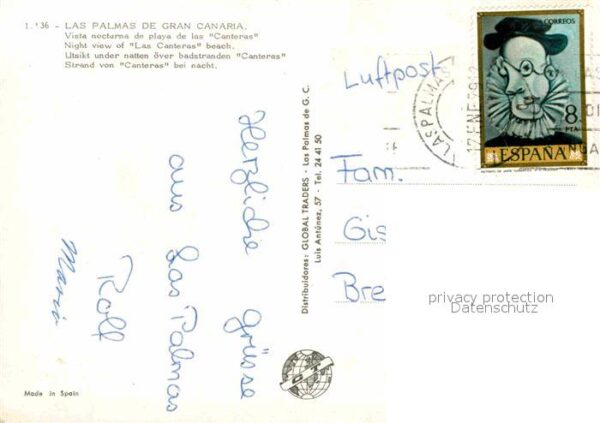 1.136 - LAS PALMAS DE GRAN CANARIA.
Vista nocturna de playa de las "Canteras"
Night view of "Las Canteras" beach.
Utsikt under natten över badstranden "Canteras"
Strand von "Canteras" bei nacht.
Luftpost
CORREOS
8
PTA
ESPAÑA
LAS PALMAS
17 ENE
Herzliche Grüsse
aus Las Palmas
Rolf
Maria
Distribuidores: GLOBAL TRADERS - Las Palmas de G. C.
Luis Antúnez, 57 - Tel. 24 41 50
Fam.
Gis
Bre
privacy protection
Datenschutz
Made in Spain